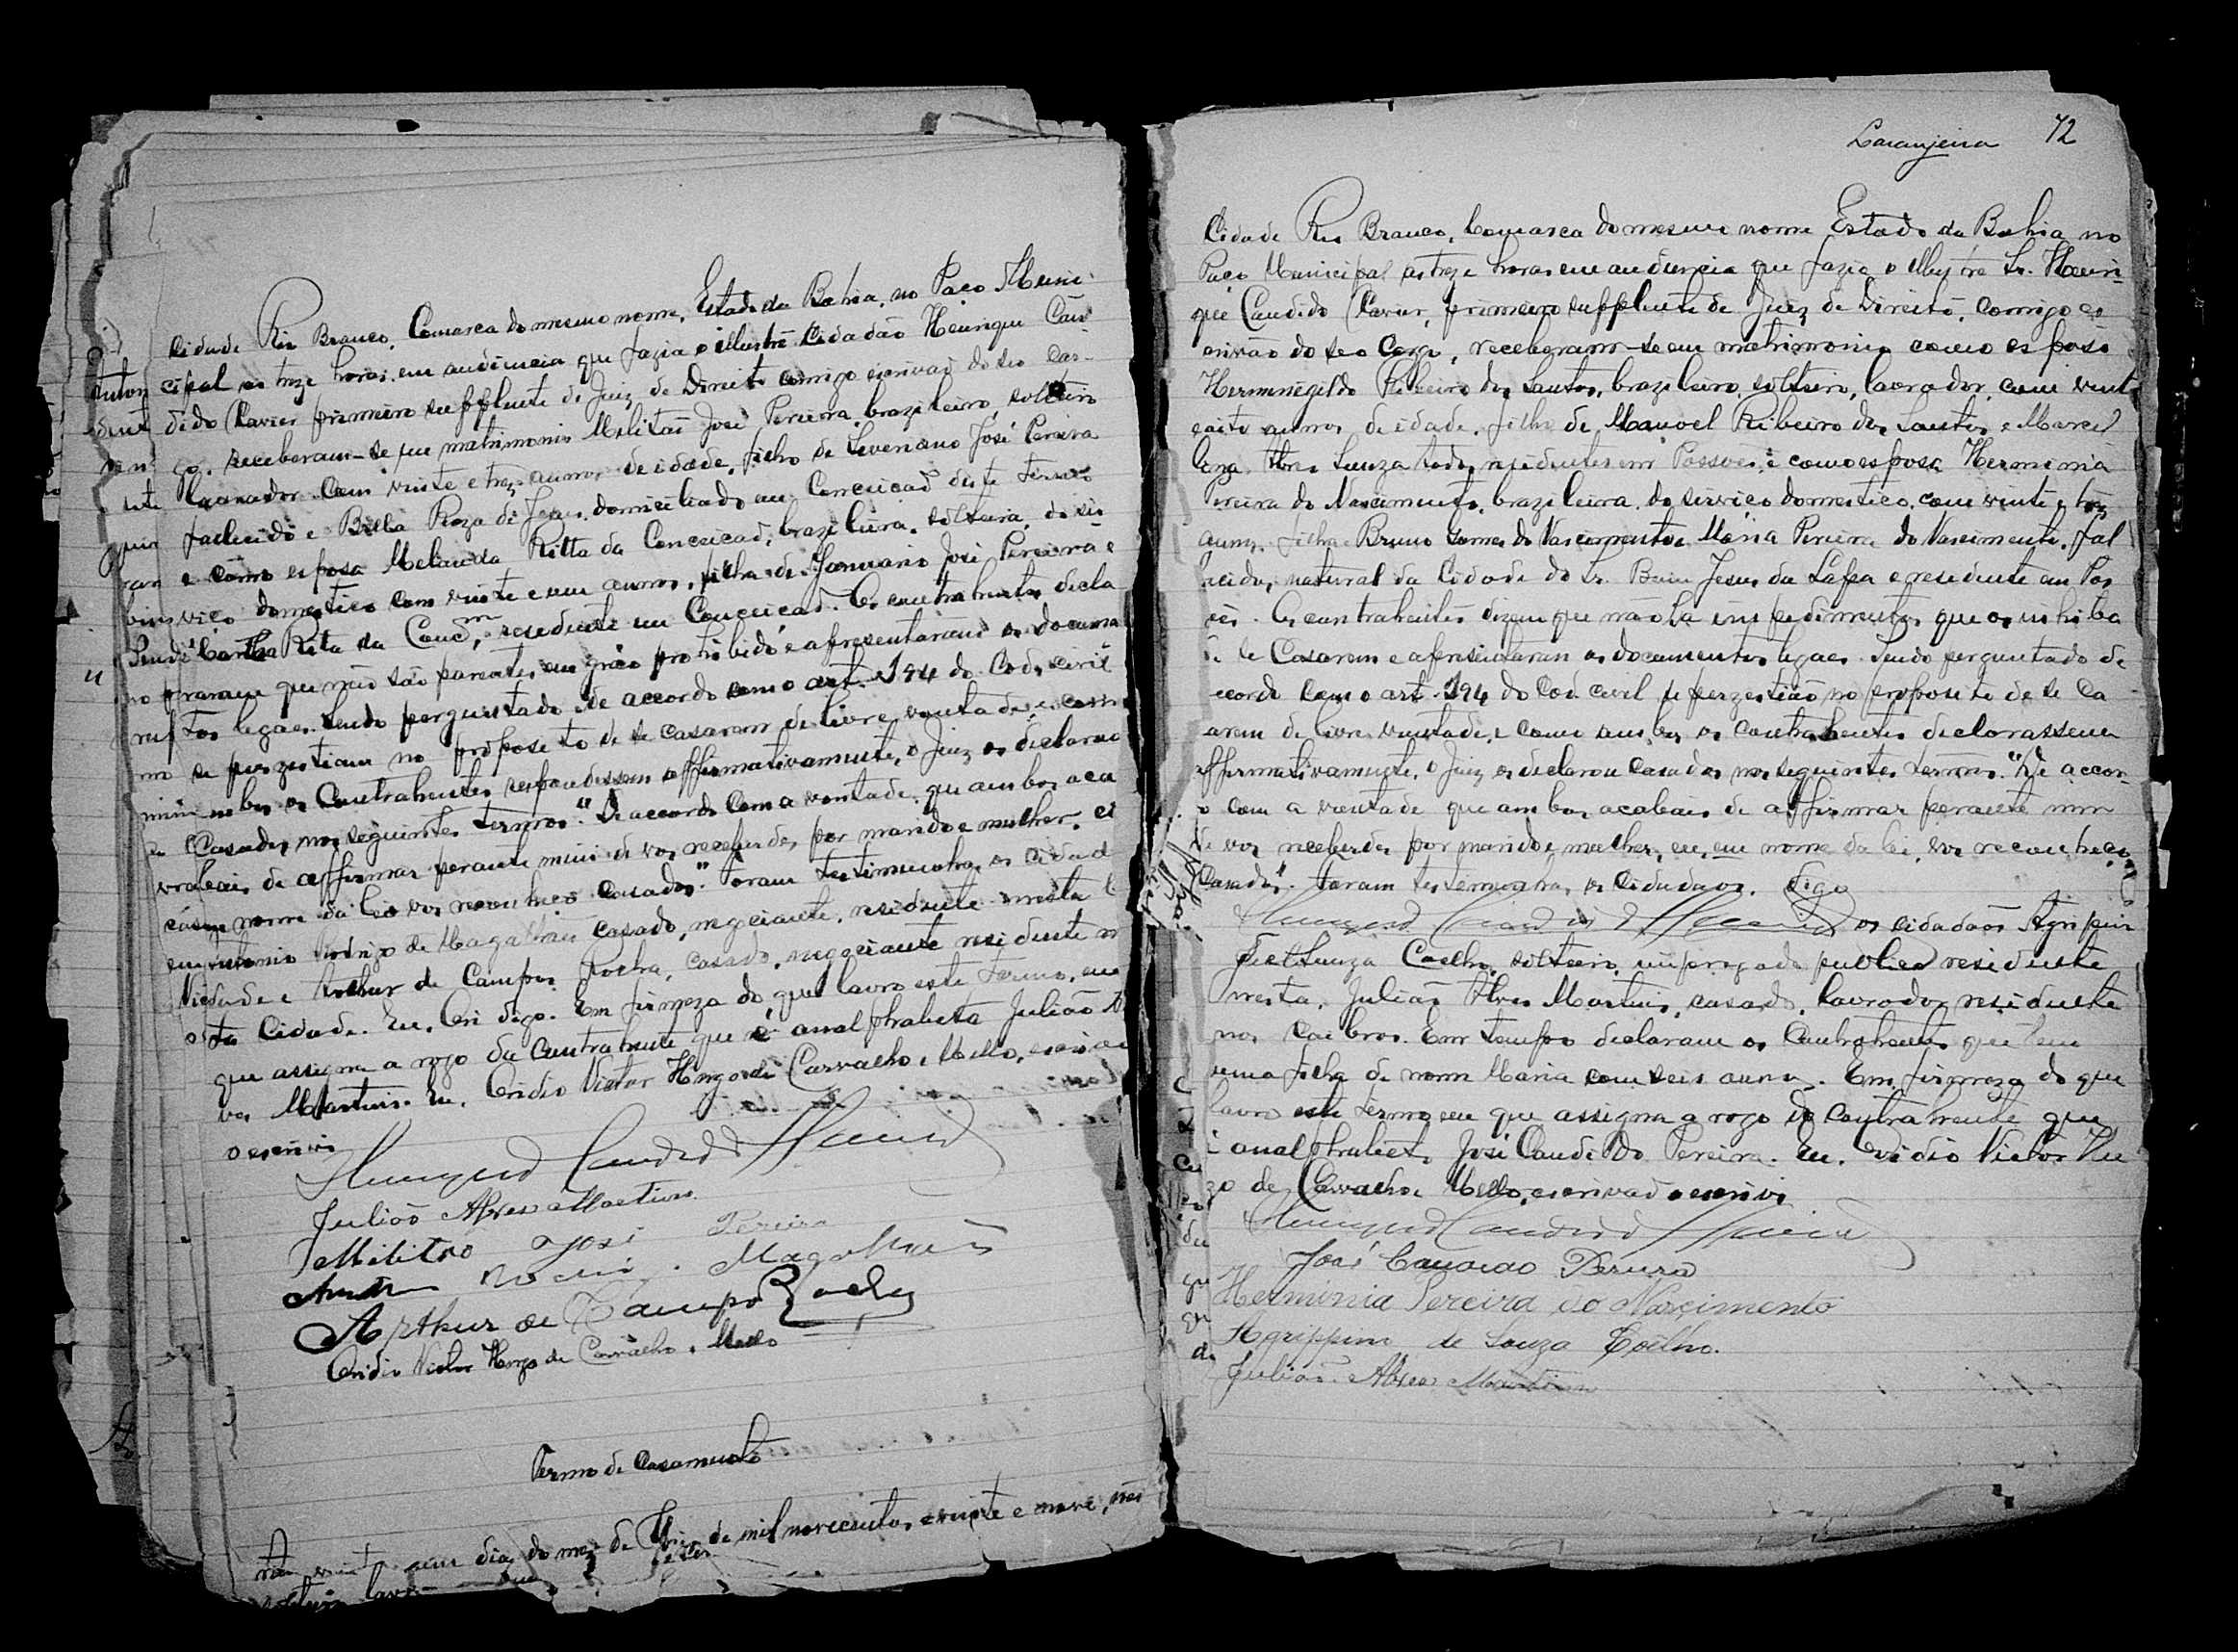 Cidade Rio Branco, Comarca do mesmo nome, Estado da Bahia, no Paço Muni-
cipal as treze horas em audiencia que fazia o illustre Cidadão Henrique Can
dido Xavier primeiro supplente de Juiz de Direito comigo escrivão do seo Car-
go, receberam-se em matrimonio Militão José Pereira, brazileiro, solteiro
lavrador com vinte e trez annos de idade, filho de Severiano José Pereira
fallecido e Bella Roza de Jesus, domiciliado em Conceicão deste termo
e como esposa Melanda Ritta da Conceicão, brazileira, solteira, do ser
viço domestico com vinte e um annos, filha de Januario José Pereira e
Rita da Concm, residente em Conceicão. Os contrahentes decla
raram que não são parentes em gráo prohibido e apresentaram os docume
ntos legaes. Sendo perguntado de accordo com o art. 194 do Cod. civil
se perzestiam no proposito de se casarem de livre vontade, e como
ambos os Contrahentes respondessem affirmativamente, o Juiz os declarou
Casados, nos seguintes termos: "De accordo com a vontade que ambos aca
baes de affirmar perante mim de vos receberdes por marido e mulher, eu
em nome da lei vos reconheço casados." Foram testimunhas os cidad
Antonio Rodrigo de Magalhães casado, negociante, residente nesta
Cidade e Arthur de Campos Rocha, casado, negociante residente n
esta Cidade. Eu, Ovi digo. Em firmeza do que lavro este termo, em
que assigna a rogo da Contrahente que é analphabeta Julião Al
ves Martins. Eu, Ovidio Victor Hugo de Carvalho e Mello, escrivão
o escrevi
Henrique Candido Xavier
Julião Alves Martins
Militão José Pereira
Magalhães
Arthur de Campos Rocha
Ovidio Victor Hugo de Carvalho e Mello
Termo de Casamento
vinte um dias do mez de de mil novecentos e vinte e nove, nes
Laranjeira 72
Cidade Rio Branco, Comarca do mesmo nome Estado da Bahia no
Paço Municipal as treze horas em audiencia que fazia o illustre Sr. Henri-
que Candido Xavier, primeiro supplente de Juiz de Direito, comigo es
crivão do seo Cargo, receberam-se em matrimonio como esposo
Hermenegildo Ribeiro dos Santos, brazileiro, solteiro, lavrador, com vinte
e oito annos de idade, filho de Manoel Ribeiro dos Santos e Marcel
Souza todos residentes em e como esposa Herminia
Pereira do Nascimento, brazileira, do serviço domestico, com vinte e trez
annos, filha Bruno Gomes do Nascimento e Maria Pereira do Nascimento, fal
lecidos, natural da Cidade do Sr. Bom Jesus da Lapa e residente em
Os contrahentes dizem que não ha impedimentos que os inhiba
de se Casarem e apresentaram os documentos legaes. Sendo perguntado de
accordo com o art. 194 do Cod civil se perzestião no proposito de se Ca
sarem de livre vontade, e como ambos os Contrahentes declorassem
affirmativamente, o Juiz os declarou Casados nos seguintes termos: "De accor-
do com a vontade que ambos acabais de affirmar perante mim
de vos receberdes por marido e mulher, eu, em nome da lei, vos reconheço
Casados". Foram testemunhas os Cidadãos. digo
Henrique Candido Xavier os cidadãos Agripin
de Souza Coelho, solteiro, empregado publico residente
nesta, Julião Alves Martins, casado, lavrador residente
nos Caibros. Em tempo declaram os Contrahentes que tem
uma filha de nome Maria com seis annos. Em firmeza do que
lavro este termo em que assigna a rogo do contrahente que
é analphabeto José Candido Pereira. Eu, Ovidio Victor Hu
go de Carvalho e Mello, escrivão o escrevi
Henrique Candido Xavier
José Candido Pereira
Herminia Pereira do Nascimento
Agrippino de Souza Coêlho.
Julião Alves Martins